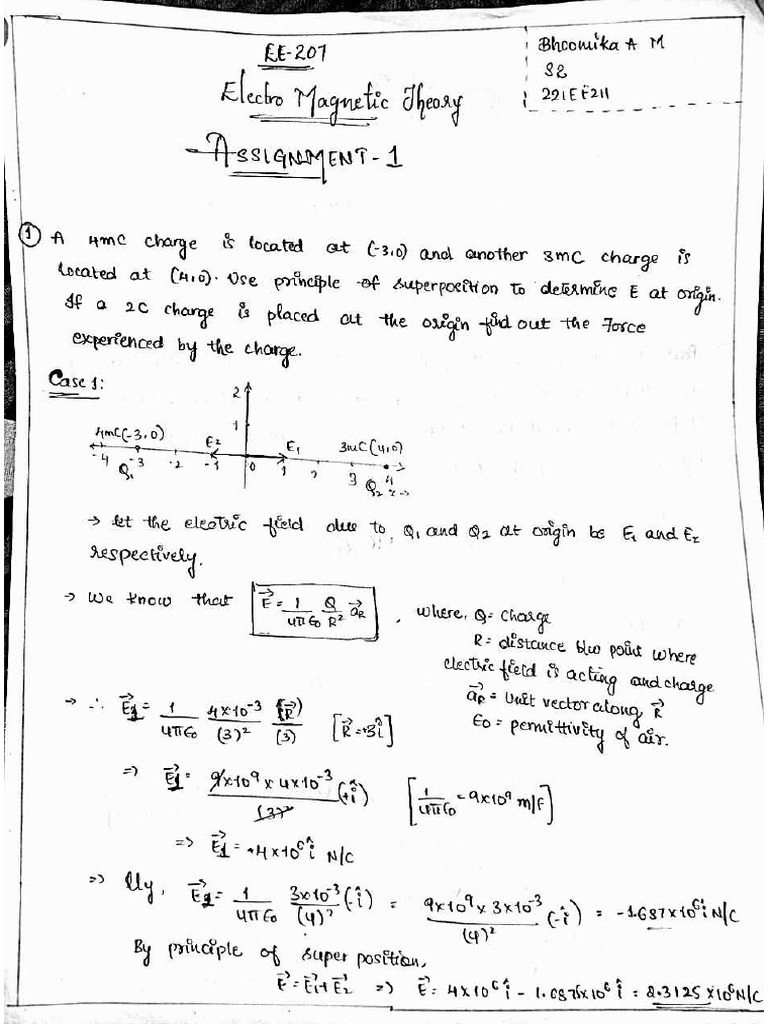 EE-207
Electro Magnetic Theory
ASSIGNMENT-1
Bhoomika A M
S2
221EE211
① A 4mC charge is located at (-3,0) and another 3mC charge is
located at (4,0). Use principle of superposition to determine E at origin.
If a 2C charge is placed at the origin find out the Force
experienced by the charge.
Case 1:
2
1
4mC(-3,0) E2 E1 3mC(4,0)
-4 -3 -2 -1 0 1 2 3 4
Q1 Q2 x→
→ let the electric field due to Q1 and Q2 at origin be E1 and E2
respectively.
→ We know that E⃗ = 1/4πε0 Q/R² a⃗R , where, Q = charge
R = distance b/w point where
electric field is acting and charge
a⃗R = Unit vector along R⃗
ε0 = permittivity of air.
→ ∴ E⃗1 = 1/4πε0 4×10⁻³/(3)² (R⃗)/(3) [R⃗ = +3î]
⇒ E⃗1 = 9×10⁹ × 4×10⁻³/(3)² (+î) [1/4πε0 = 9×10⁹ m/F]
⇒ E⃗1 = +4×10⁶ î N/C
⇒ llly, E⃗2 = 1/4πε0 3×10⁻³/(4)² (-î) = 9×10⁹ × 3×10⁻³/(4)² (-î) = -1.687×10⁶ î N/C
By principle of super position,
E⃗ = E⃗1 + E⃗2 ⇒ E⃗ = 4×10⁶ î - 1.687×10⁶ î = 2.3125 ×10⁶ N/C